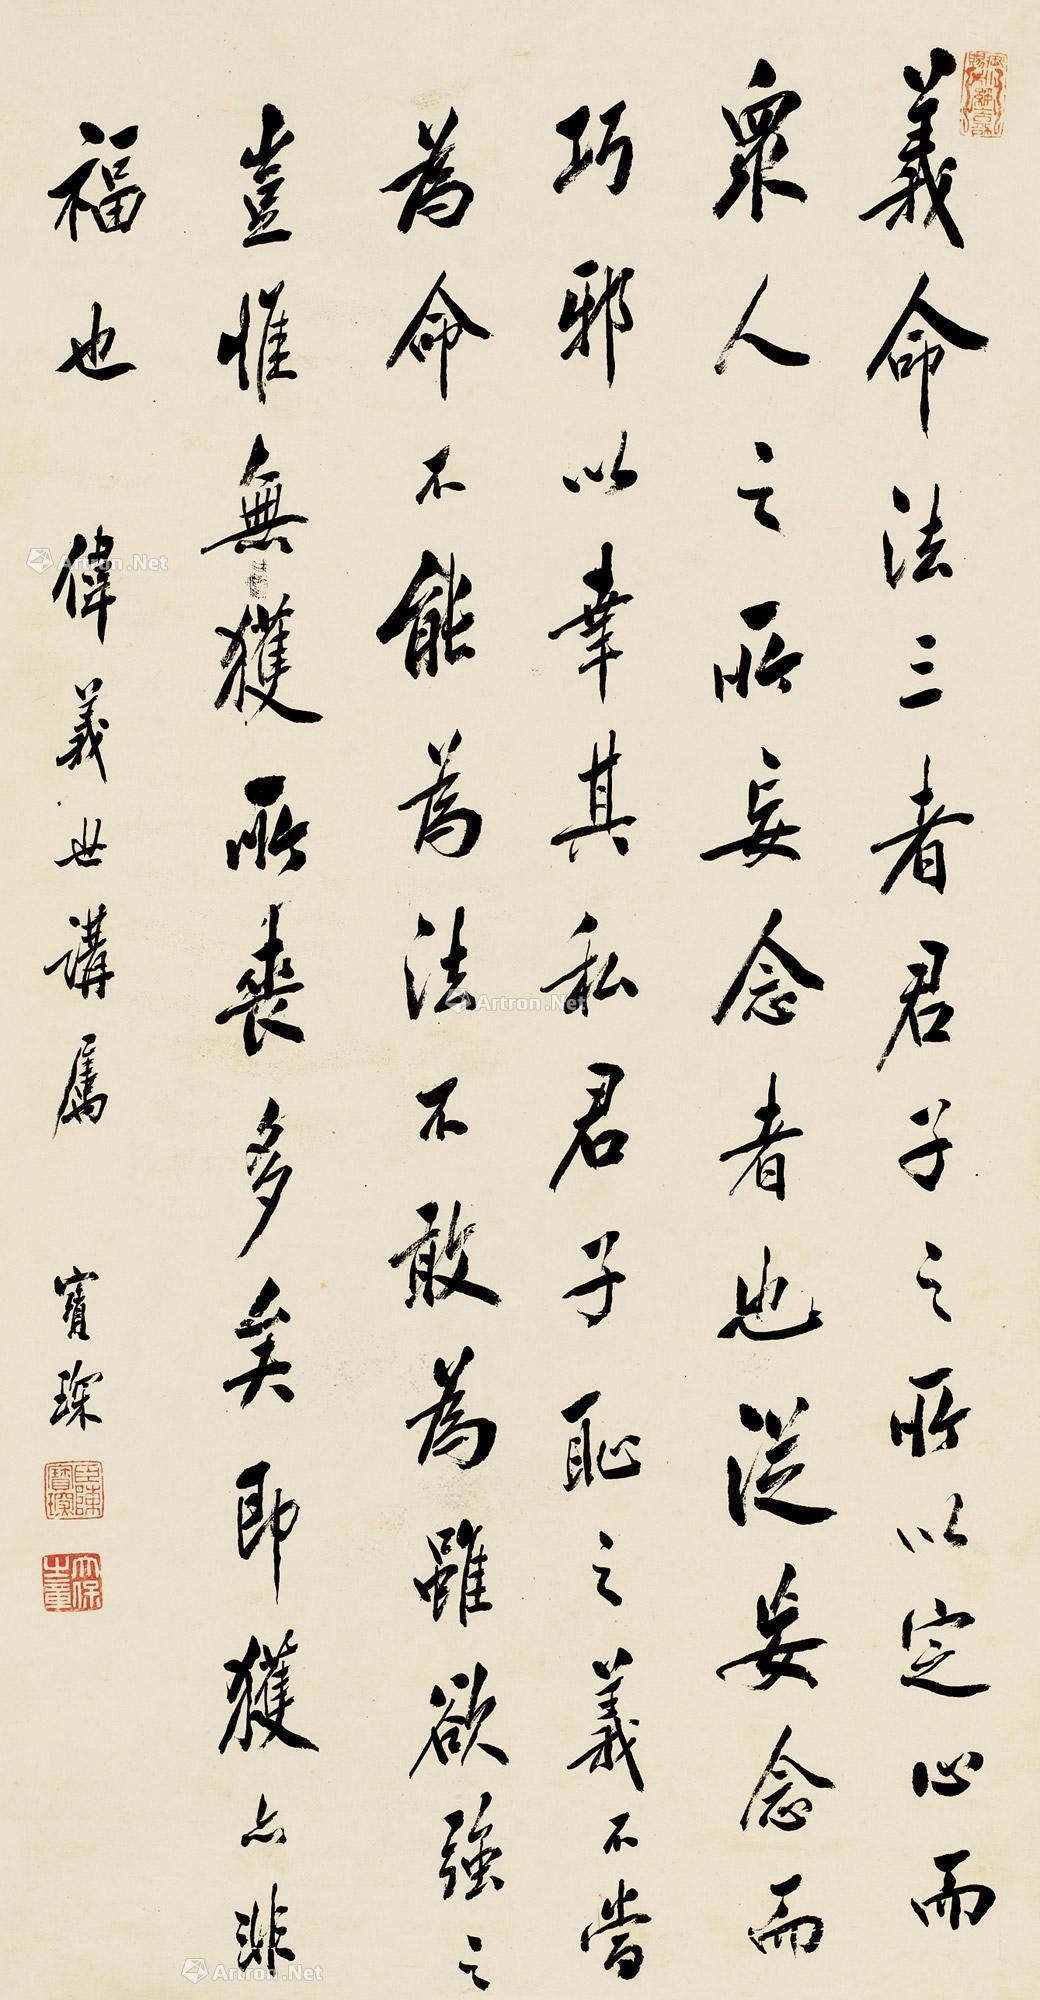 義命法三者君子之所以定心而
眾人之所妄念者也從妄念而
巧邪以幸其私君子恥之義不當
為命不能為法不敢為雖欲強之
豈惟無獲所喪多矣即獲亦非
福也
偉義世講屬
寶琛
臣陳寶琛
太保
Artron.Net
Artron.Net
Artron.Net